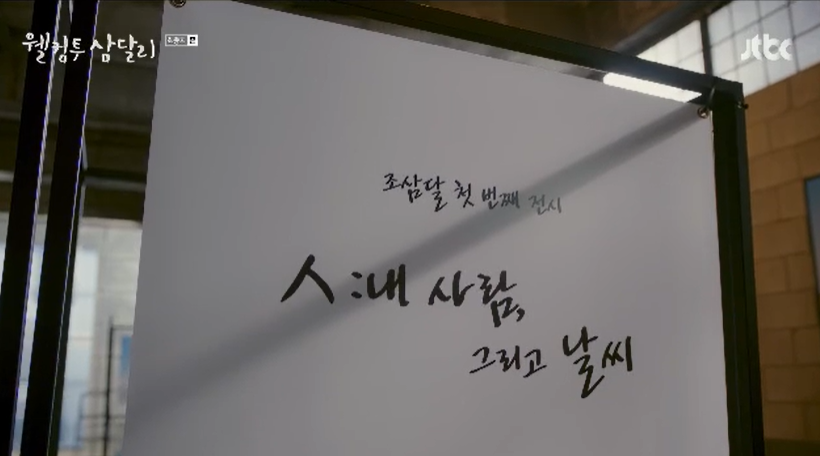 웰컴투 삼달리
jtbc
조삼달 첫 번째 전시
人:내 사람,
그리고 날씨